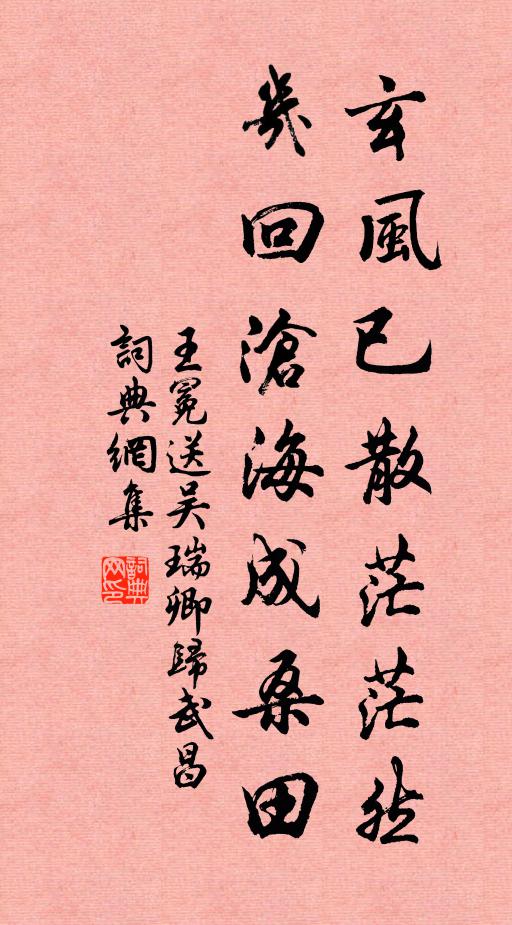 玄風已散茫茫然
幾回滄海成桑田
王冕送吴瑞卿歸武昌
詞典網集
詞典網印